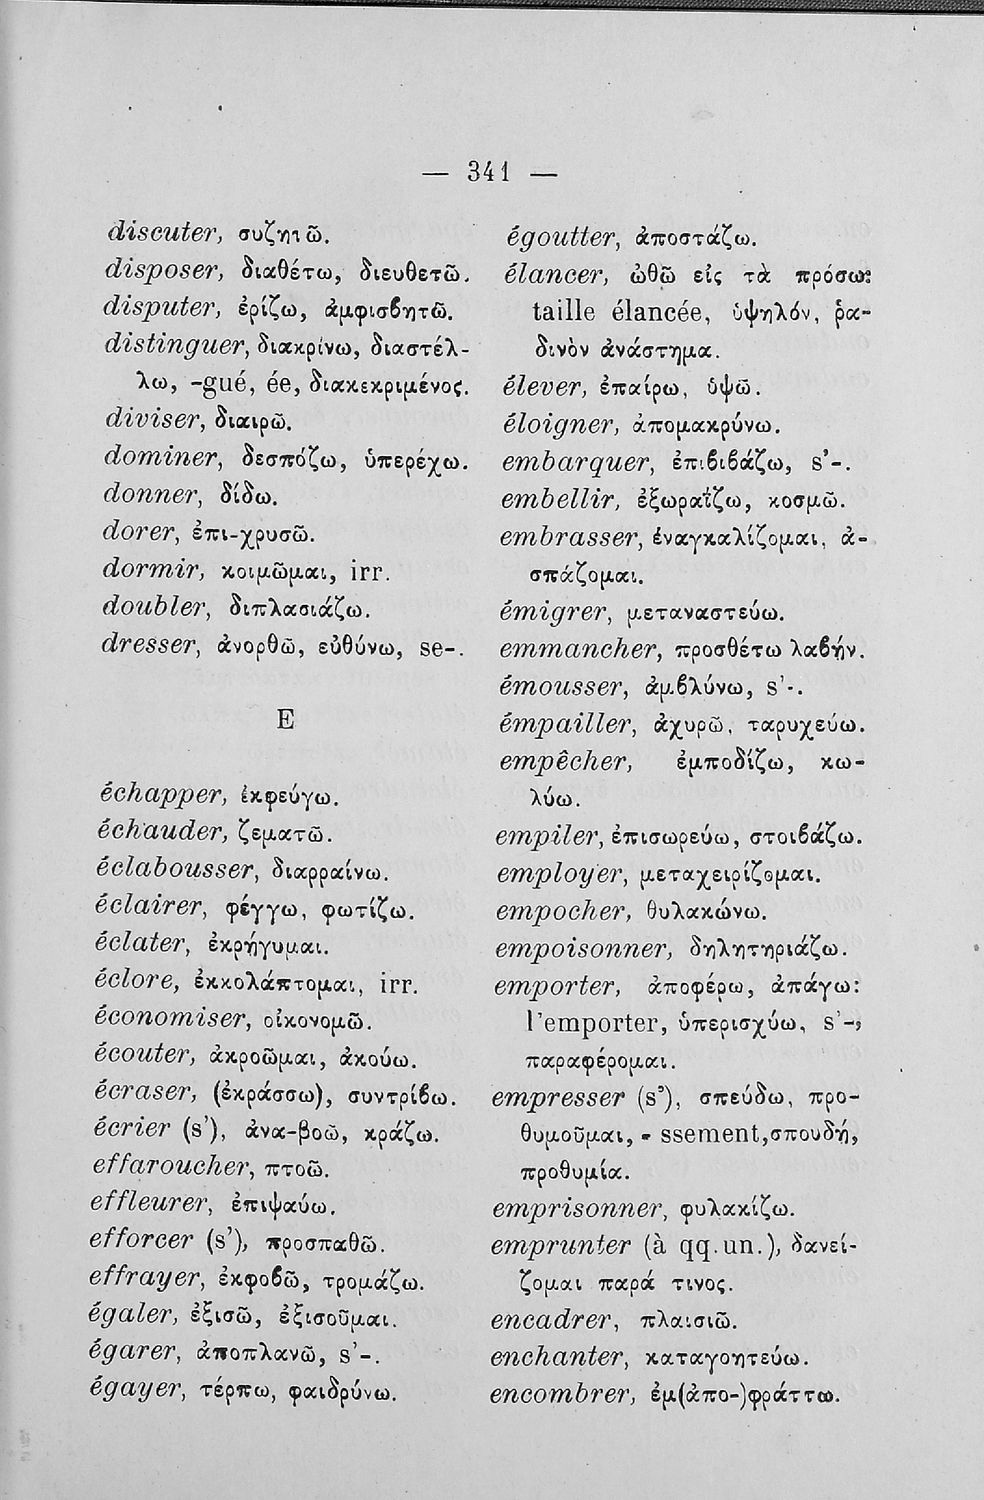 — 341 —
discuter, συζητῶ.
disposer, διαθέτω, διευθετῶ.
disputer, ἐρίζω, ἀμφισβητῶ.
distinguer, διακρίνω, διαστέλ-
λω, -gué, ée, διακεκριμένος.
diviser, διαιρῶ.
dominer, δεσπόζω, ὑπερέχω.
donner, δίδω.
dorer, ἐπι-χρυσῶ.
dormir, κοιμῶμαι, irr.
doubler, διπλασιάζω.
dresser, ἀνορθῶ, εὐθύνω, se-.
E
échapper, ἐκφεύγω.
échauder, ζεματῶ.
éclabousser, διαρραίνω.
éclairer, φέγγω, φωτίζω.
éclater, ἐκρήγυμαι.
éclore, ἐκκολάπτομαι, irr.
économiser, οἰκονομῶ.
écouter, ἀκροῶμαι, ἀκούω.
écraser, (ἐκράσσω), συντρίβω.
écrier (s'), ἀνα-βοῶ, κράζω.
effaroucher, πτοῶ.
effleurer, ἐπιψαύω.
efforcer (s'), προσπαθῶ.
effrayer, ἐκφοβῶ, τρομάζω.
égaler, ἐξισῶ, ἐξισοῦμαι.
égarer, ἀποπλανῶ, s'-.
égayer, τέρπω, φαιδρύνω.
égoutter, ἀποστάζω.
élancer, ὠθῶ εἰς τὰ πρόσω:
taille élancée, ὑψηλόν, ῥα-
δινὸν ἀνάστημα.
élever, ἐπαίρω, ὑψῶ.
éloigner, ἀπομακρύνω.
embarquer, ἐπιβιβάζω, s'-.
embellir, ἐξωραΐζω, κοσμῶ.
embrasser, ἐναγκαλίζομαι, ἀ-
σπάζομαι.
émigrer, μεταναστεύω.
emmancher, προσθέτω λαβήν.
émousser, ἀμβλύνω, s'-.
émpailler, ἀχυρῶ, ταρυχεύω.
empêcher, ἐμποδίζω, κω-
λύω.
empiler, ἐπισωρεύω, στοιβάζω.
employer, μεταχειρίζομαι.
empocher, θυλακώνω.
empoisonner, δηλητηριάζω.
emporter, ἀποφέρω, ἀπάγω:
l'emporter, ὑπερισχύω, s'-,
παραφέρομαι.
empresser (s'), σπεύδω, προ-
θυμοῦμαι, - ssement, σπουδή,
προθυμία.
emprisonner, φυλακίζω.
emprunter (à qq.un.), δανεί-
ζομαι παρά τινος.
encadrer, πλαισιῶ.
enchanter, καταγοητεύω.
encombrer, ἐμ(ἀπο-)φράττω.